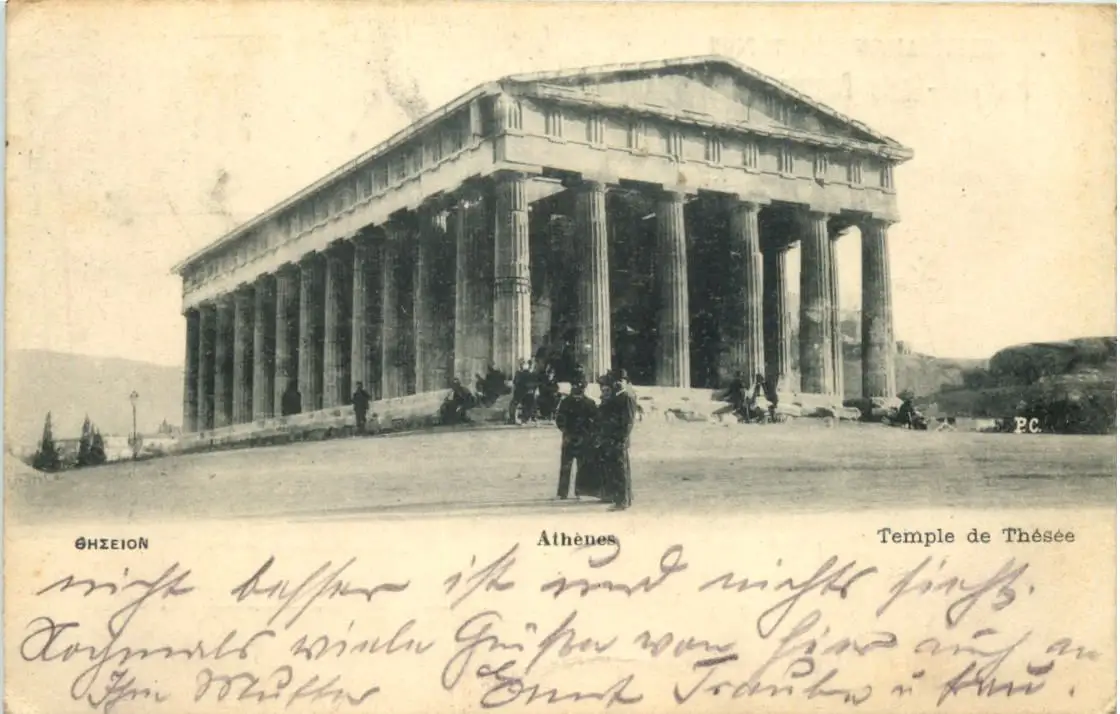 P.C.
ΘΗΣΕΙΟΝ
Athènes
Temple de Thésée
nicht besser ist und nichts sieht.
Nochmals viele Grüße von hier auch an
Ihre Mutter Ernst Traube u frau.